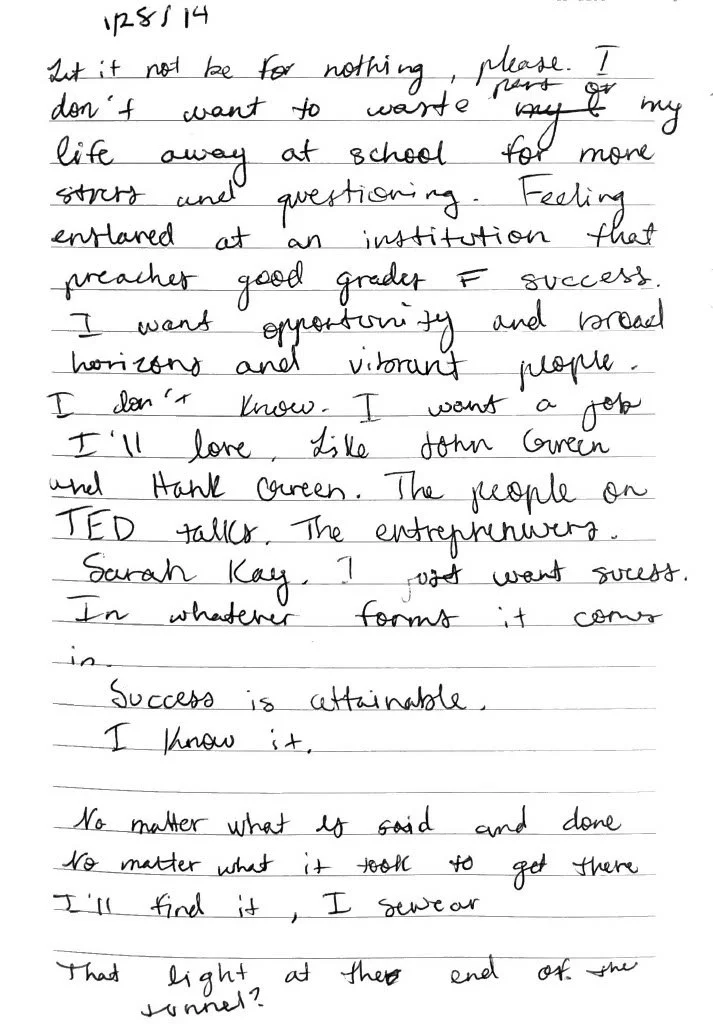 1/28/14
Let it not be for nothing, please. I
don't want to waste part of my
life away at school for more
stress and questioning. Feeling
enslaved at an institution that
preaches good grades = success.
I want opportunity and broad
horizons and vibrant people.
I don't know. I want a job
I'll love. Like John Green
and Hank Green. The people on
TED talks. The entreprenuers.
Sarah Kay. I just want sucess.
In whatever forms it comes
in.
Success is attainable.
I know it.
No matter what is said and done
No matter what it took to get there
I'll find it, I swear
That light at the end of the
tunnel?